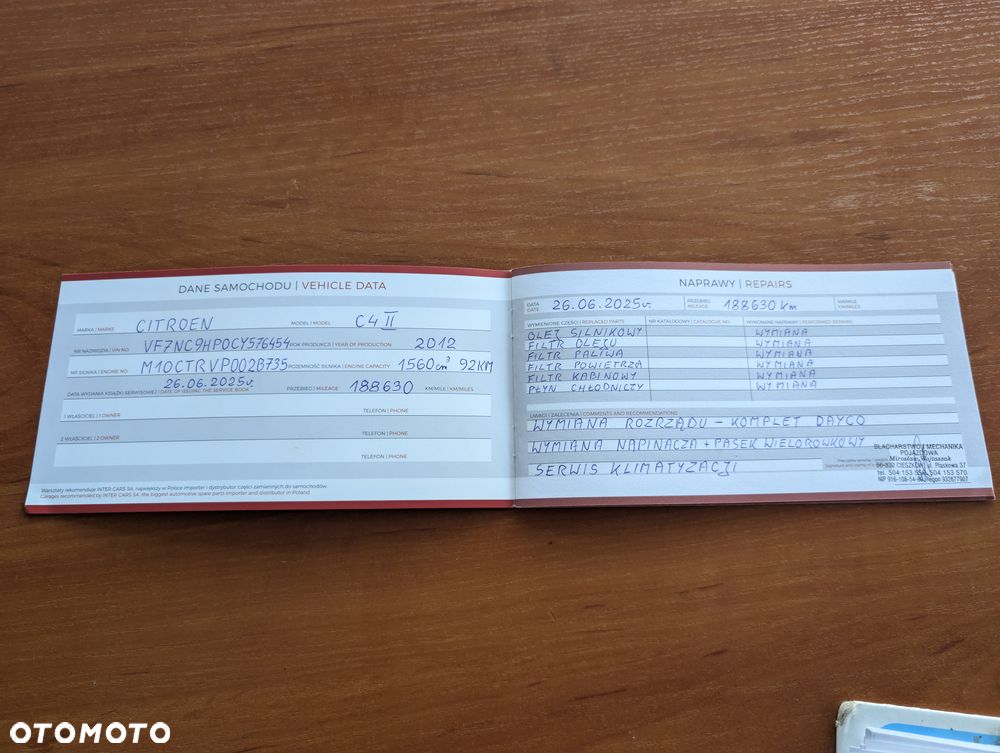 DANE SAMOCHODU | VEHICLE DATA
MARKA | MAKE CITROEN MODEL | MODEL C4 II
NR NADWOZIA | VIN NO. VF7NC9HP0CY576454 ROK PRODUKCJI | YEAR OF PRODUCTION 2012
NR SILNIKA | ENGINE NO M10CTRVP002B735 POJEMNOŚĆ SILNIKA | ENGINE CAPACITY 1560cm³ 92KM
DATA WYDANIA KSIĄŻKI SERWISOWEJ | DATE OF ISSUING THE SERVICE BOOK 26.06.2025r. PRZEBIEG | MILEAGE 188630 KM/MILE | KM/MILES
TELEFON | PHONE
1 WŁAŚCICIEL | 1 OWNER
TELEFON | PHONE
2 WŁAŚCICIEL | 2 OWNER
TELEFON | PHONE
Warsztaty rekomenduje INTER CARS SA, największy w Polsce importer i dystrybutor części zamiennych do samochodów.
Garages recommended by INTER CARS SA, the biggest automotive spare parts importer and distributor in Poland.
NAPRAWY | REPAIRS
DATA DATE 26.06.2025r. PRZEBIEG MILEAGE 188630 km KM/MILE KM/MILES
WYMIENIONE CZĘŚCI | REPLACED PARTS NR KATALOGOWY | CATALOGUE NO. WYKONANE NAPRAWY | PERFORMED REPAIRS
OLEJ SILNIKOWY WYMIANA
FILTR OLEJU WYMIANA
FILTR PALIWA WYMIANA
FILTR POWIETRZA WYMIANA
FILTR KABINOWY WYMIANA
PŁYN CHŁODNICZY WYMIANA
UWAGI | ZALECENIA | COMMENTS AND RECOMMENDATIONS
WYMIANA ROZRZĄDU - KOMPLET DAYCO
WYMIANA NAPINACZA + PASEK WIELOROWKOWY
SERWIS KLIMATYZACJI
BLACHARSTWO I MECHANIKA
POJAZDOWA
Mirosław Wojtaszak
CIESZKÓW, ul. Piaskowa 37
tel. 504 153 554, 504 153 570
Regon 932677907
OTOMOTO